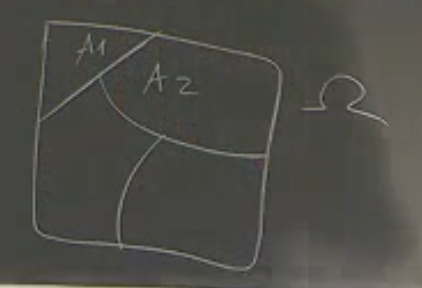 A1
A2
Ω